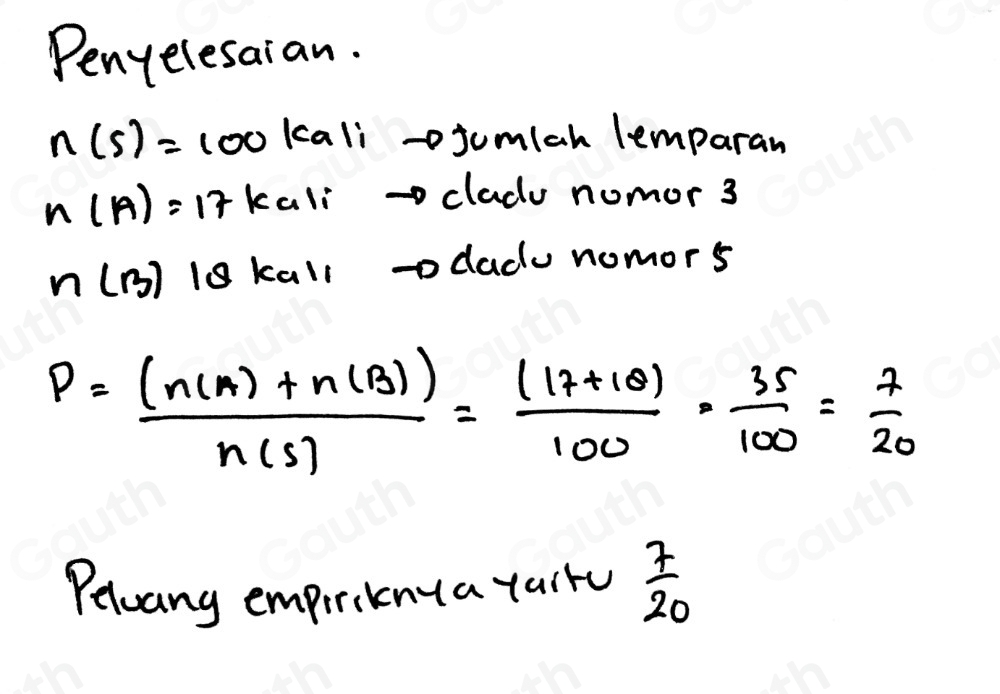 Penyelesaian.
n(S) = 100 kali → jumlah lemparan
n(A) = 17 kali → dadu nomor 3
n(B) 18 kali → dadu nomor 5
P = (n(A) + n(B)) / n(S) = (17+18) / 100 = 35/100 = 7/20
Peluang empiriknya yaitu 7/20
Gauth